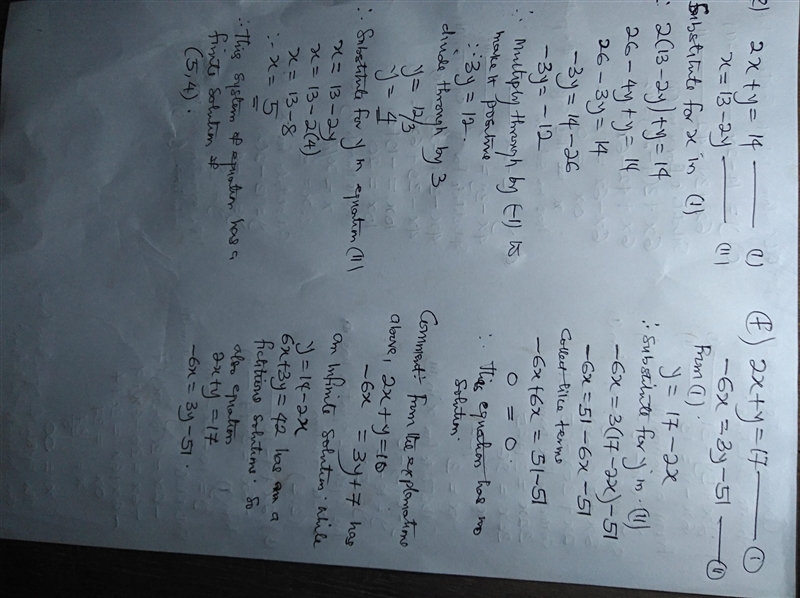 e) 2x+y = 14 ——— (I)
x = 13 - 2y ——— (II)
Substitute for x in (I)
∴ 2(13-2y)+y = 14
26 - 4y + y = 14
26 - 3y = 14
-3y = 14 - 26
-3y = -12
∴ Multiply through by (-1) to
make it positive
∴ 3y = 12.
divide through by 3
y = 12/3
y = 4
∴ Substitute for y in equation (II)
x = 13 - 2y
x = 13 - 2(4)
x = 13 - 8
∴ x = 5
∴ This system of equation has a
finite solution of
(5,4).
(f) 2x+y = 17 ——— (I)
-6x = 3y - 51 ——— (II)
From (I)
y = 17 - 2x
∴ Substitute for y in (II)
-6x = 3(17-2x) - 51
-6x = 51 - 6x - 51
Collect like terms
-6x+6x = 51 - 51
0 = 0.
∴ This equation has no
solution.
Comment: From the explanations
above, 2x+y = 10
-6x = 3y+7 has
an infinite solution. While
y = 14 - 2x
6x+3y = 42 has a
solutions. So
also equation
2x+y = 17
-6x = 3y - 51.